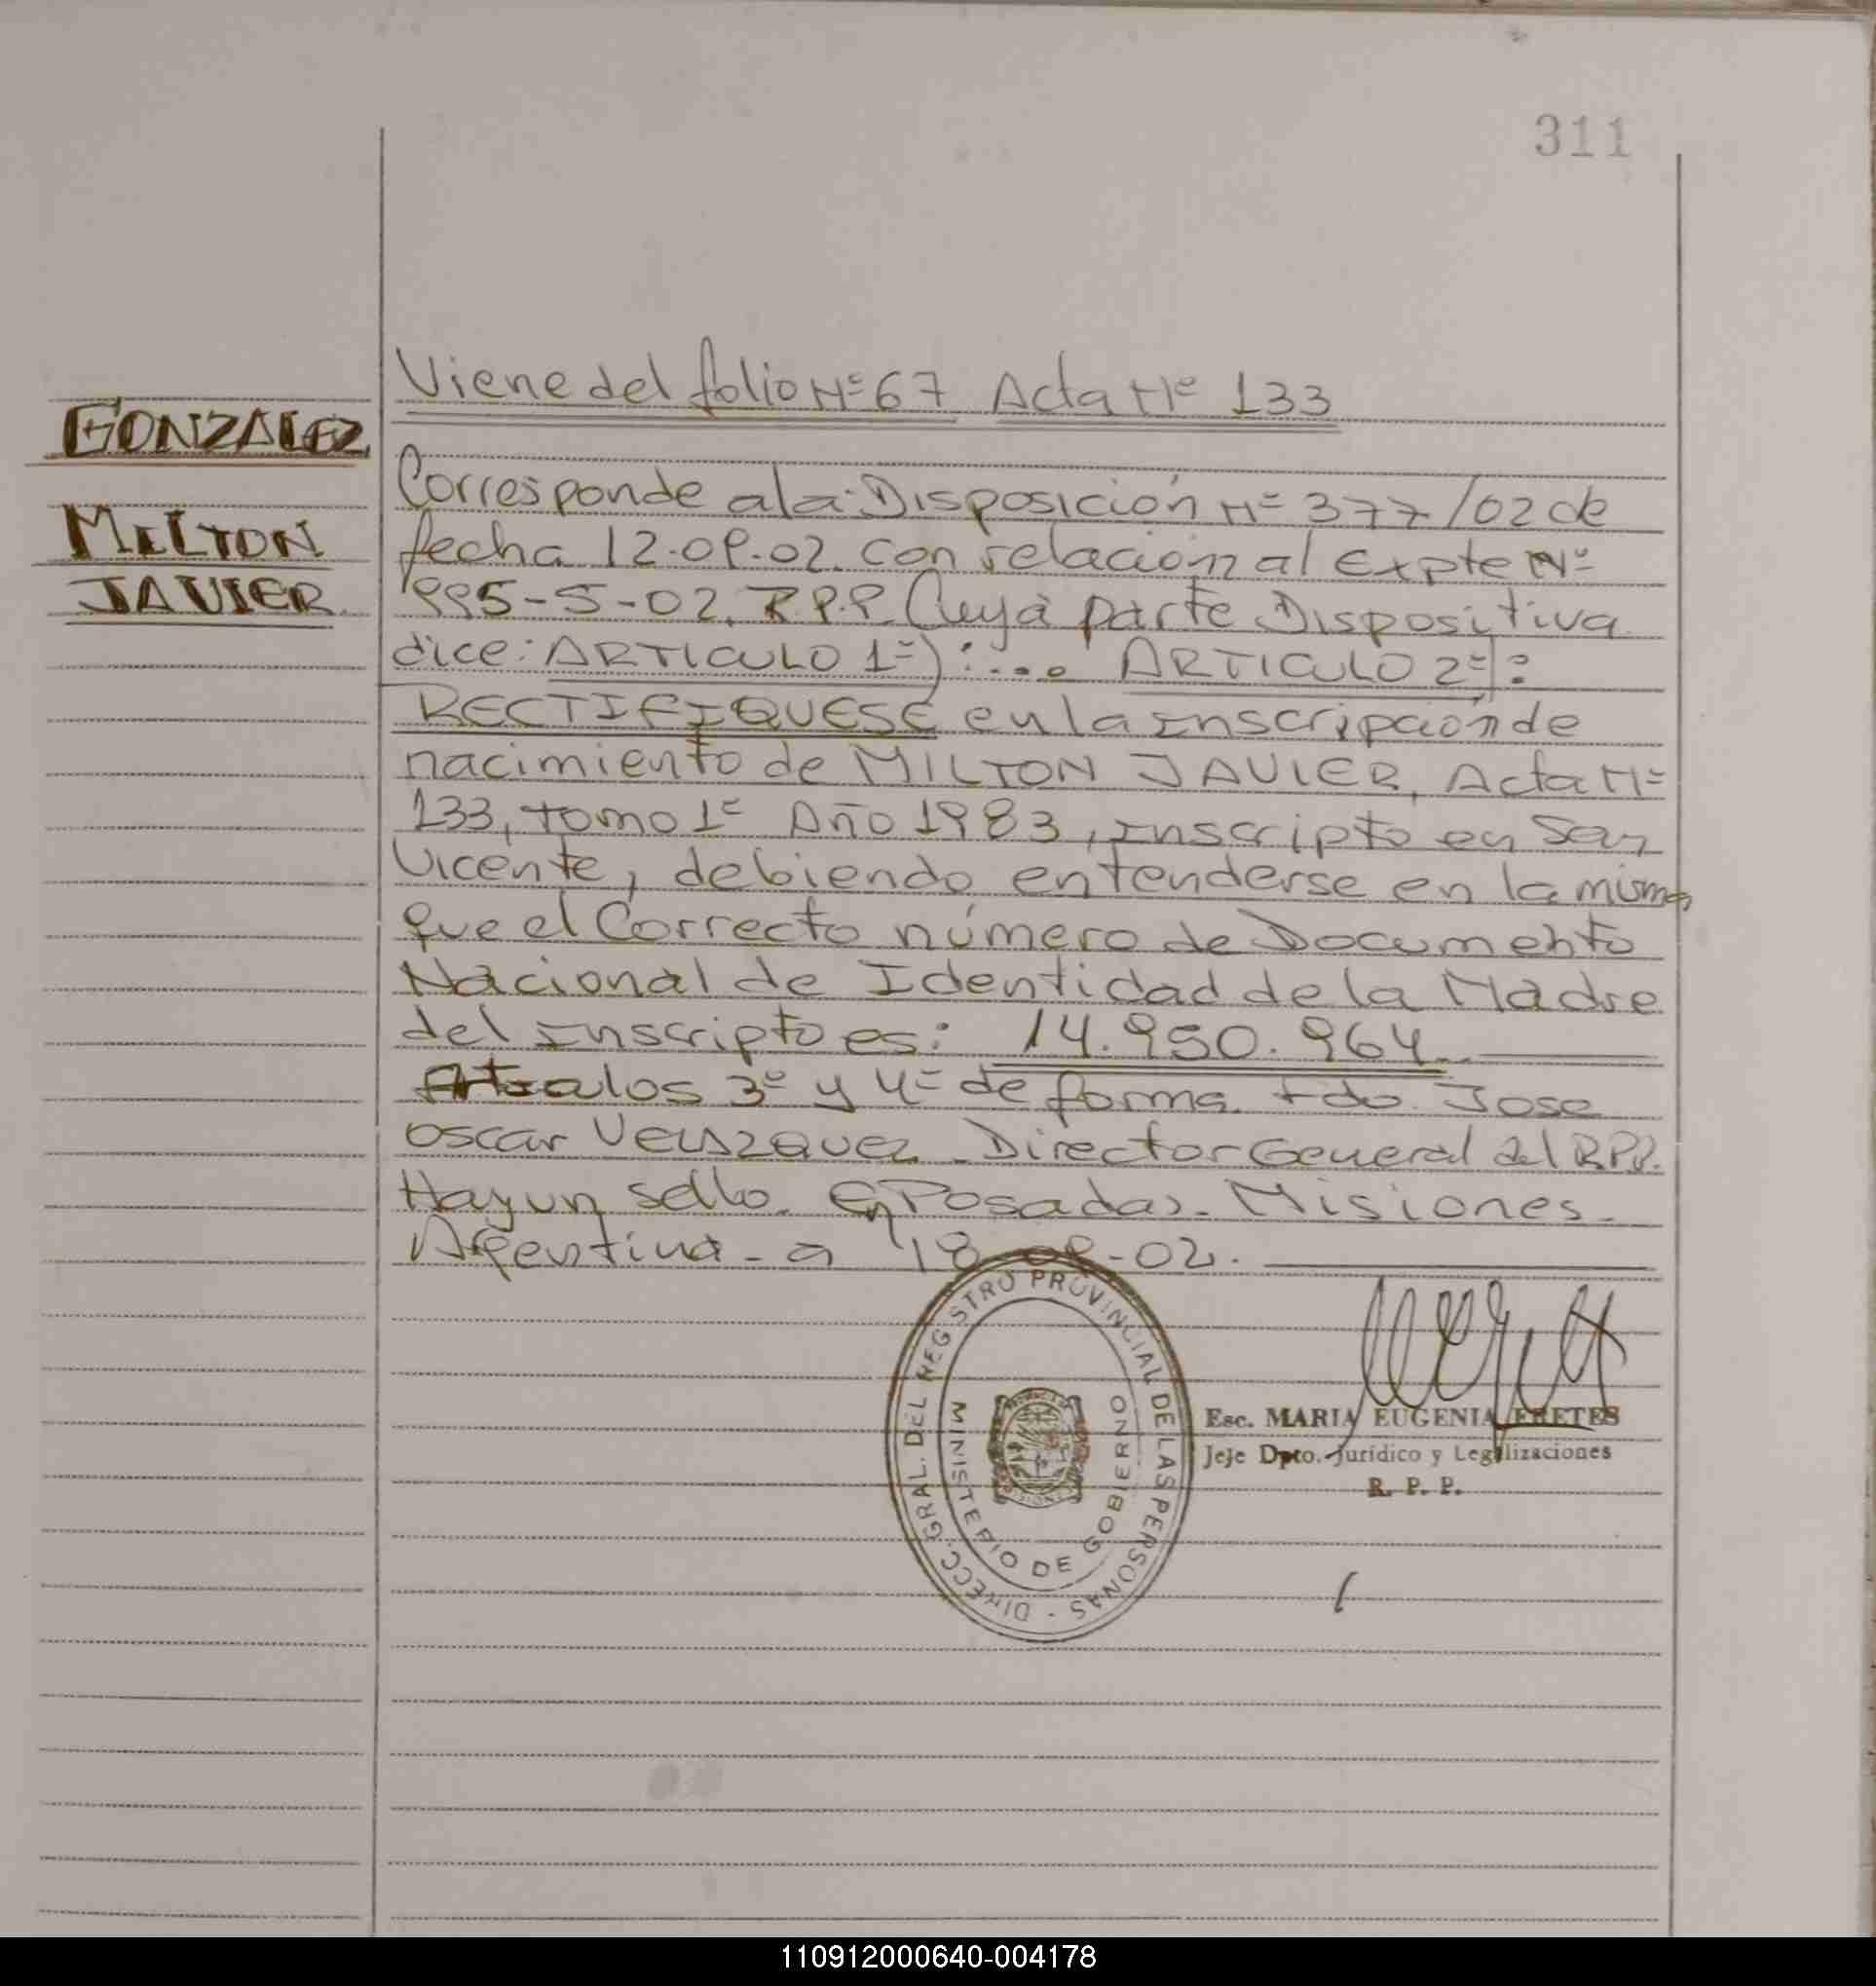 311
Viene del folio Nº 67 Acta Nº 133
GONZALEZ
MILTON
JAVIER
Corresponde a la Disposición Nº 377/02 de
fecha 12.09.02 con relación al Expte Nº
995-S-02, R.P.P. Cuya parte Dispositiva
dice: ARTICULO 1º):... ARTICULO 2º):
RECTIFIQUESE en la Inscripción de
nacimiento de MILTON JAVIER, Acta Nº
133, tomo 1º Año 1983, Inscripto en San
Vicente, debiendo entenderse en la misma
que el Correcto número de Documento
Nacional de Identidad de la Madre
del Inscripto es: 14.950.964
Articulos 3º y 4º de forma. Fdo. Jose
Oscar Velazquez - Director General del R.P.P.
Hay un sello. En Posadas - Misiones -
Argentina - a 18-09-02.
DIRECC. GRAL. DEL REGISTRO PROVINCIAL DE LAS PERSONAS -
MINISTERIO DE GOBIERNO
Esc. MARIA EUGENIA FRETES
Jefe Dpto. Jurídico y Legalizaciones
R. P. P.
110912000640-004178